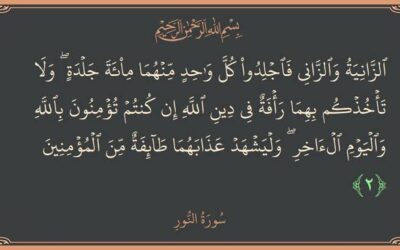 بِسْمِ اللَّهِ الرَّحْمَٰنِ الرَّحِيمِ
ٱلزَّانِيَةُ وَٱلزَّانِى فَٱجْلِدُوا۟ كُلَّ وَٰحِدٍ مِّنْهُمَا مِا۟ئَةَ جَلْدَةٍ ۖ وَلَا
تَأْخُذْكُم بِهِمَا رَأْفَةٌ فِى دِينِ ٱللَّهِ إِن كُنتُمْ تُؤْمِنُونَ بِٱللَّهِ
وَٱلْيَوْمِ ٱلْءَاخِرِ ۖ وَلْيَشْهَدْ عَذَابَهُمَا طَآئِفَةٌ مِّنَ ٱلْمُؤْمِنِينَ
﴿٢﴾
سُورَةُ النُّورِ